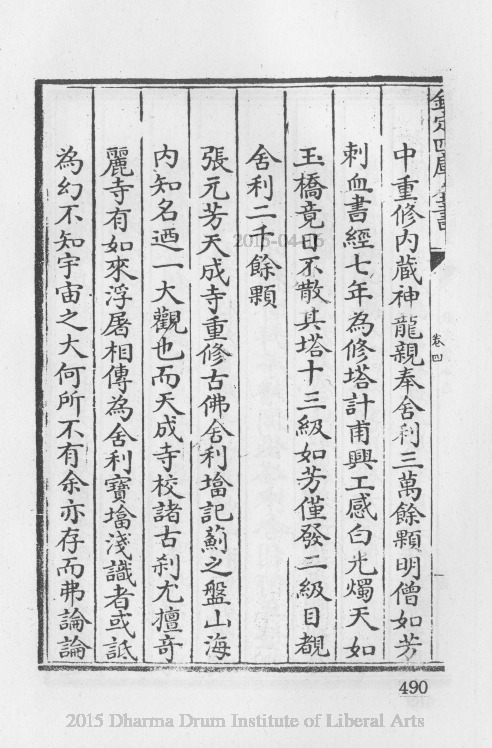 欽定四庫全書
卷四
中重修内藏神龍親奉舍利三萬餘顆明僧如芳
刺血書經七年為修塔計甫興工感白光燭天如
玉橋竟日不散其塔十三級如芳僅發三級目覩
舍利二千餘顆
張元芳天成寺重修古佛舍利墖記薊之盤山海
内知名迺一大觀也而天成寺校諸古刹尤擅奇
麗寺有如來浮屠相傳為舍利寶墖淺識者或詆
為幻不知宇宙之大何所不有余亦存而弗論論
490
2015-04-16
2015 Dharma Drum Institute of Liberal Arts